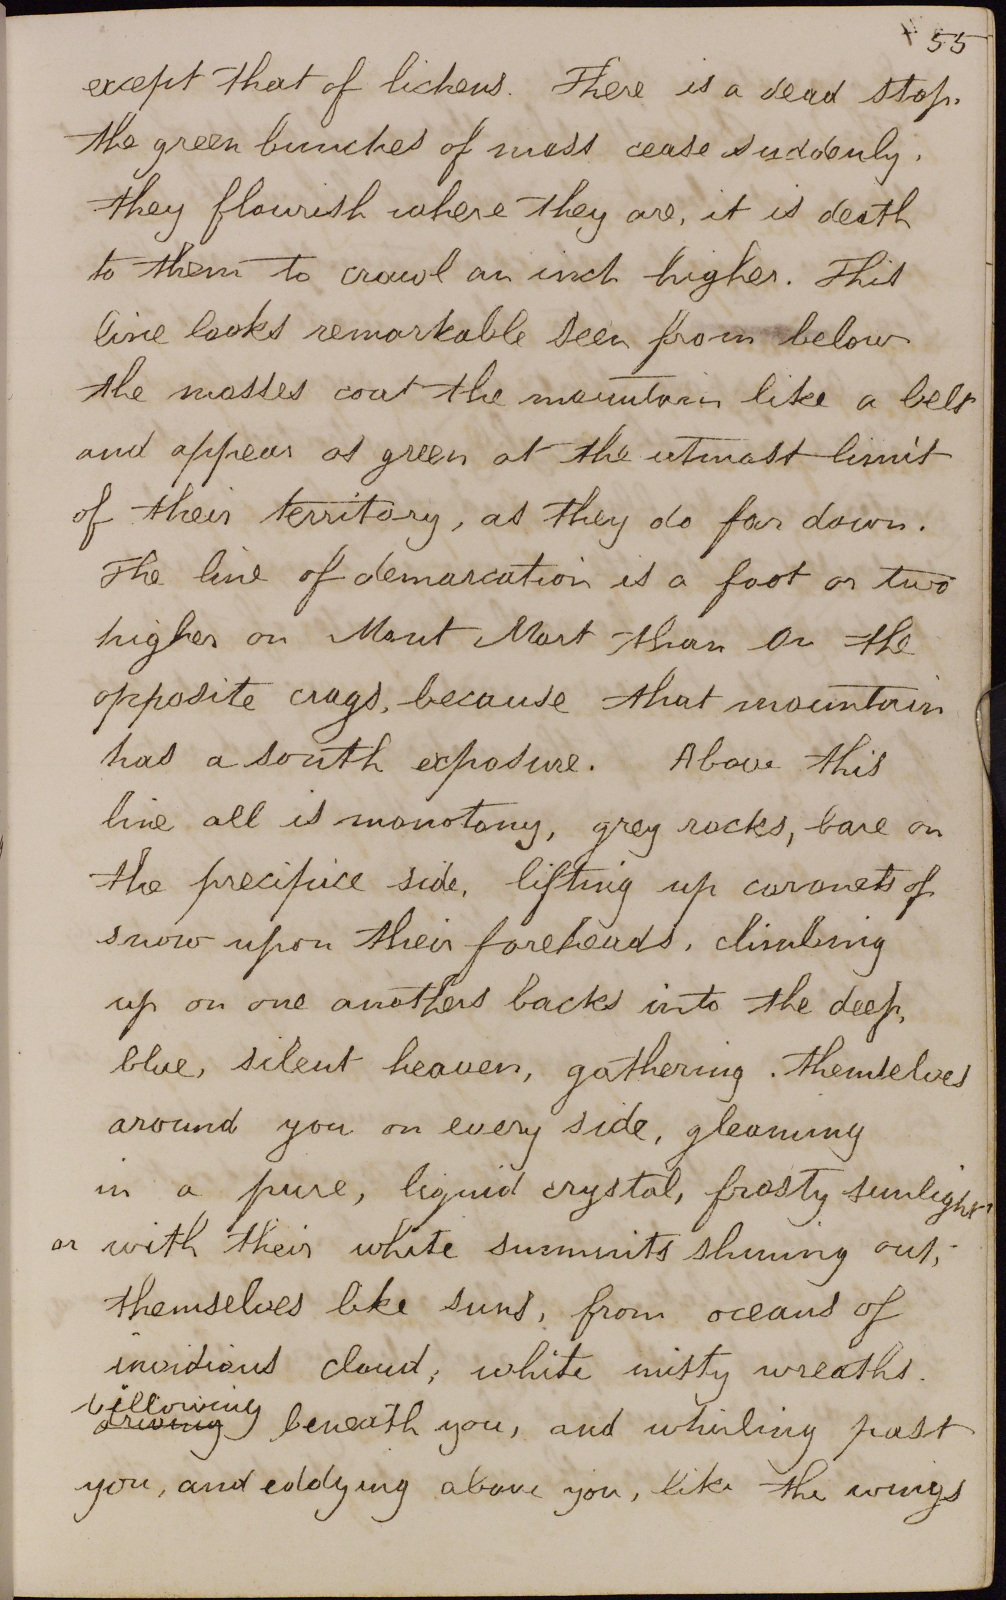 55
except that of lichens. There is a dead stop.
the green bunches of moss cease suddenly.
they flourish where they are, it is death
to them to crawl an inch higher. This
line looks remarkable seen from below
the mosses coat the mountain like a belt
and appear as green at the utmost limit
of their territory, as they do far down.
The line of demarcation is a foot or two
higher on Mont Mort than on the
opposite crags, because that mountain
has a south exposure. Above this
line all is monotony, grey rocks, bare on
the precipice side, lifting up coronets of
snow upon their foreheads, climbing
up on one anothers backs into the deep,
blue, silent heaven, gathering themselves
around you on every side, gleaming
in a pure, liquid crystal, frosty sunlight
or with their white summits shining out,
themselves like suns, from oceans of
invidious cloud; white misty wreaths.
billowing
driving beneath you, and whirling past
you, and eddying above you, like the wings